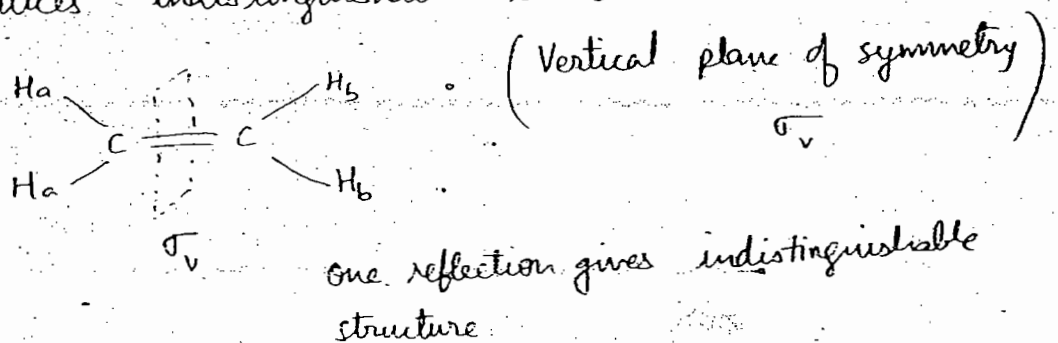 Ha
Hb
(Vertical plane of symmetry)
σv
C = C
Ha
Hb
σv
one reflection gives indistinguishable
structure.